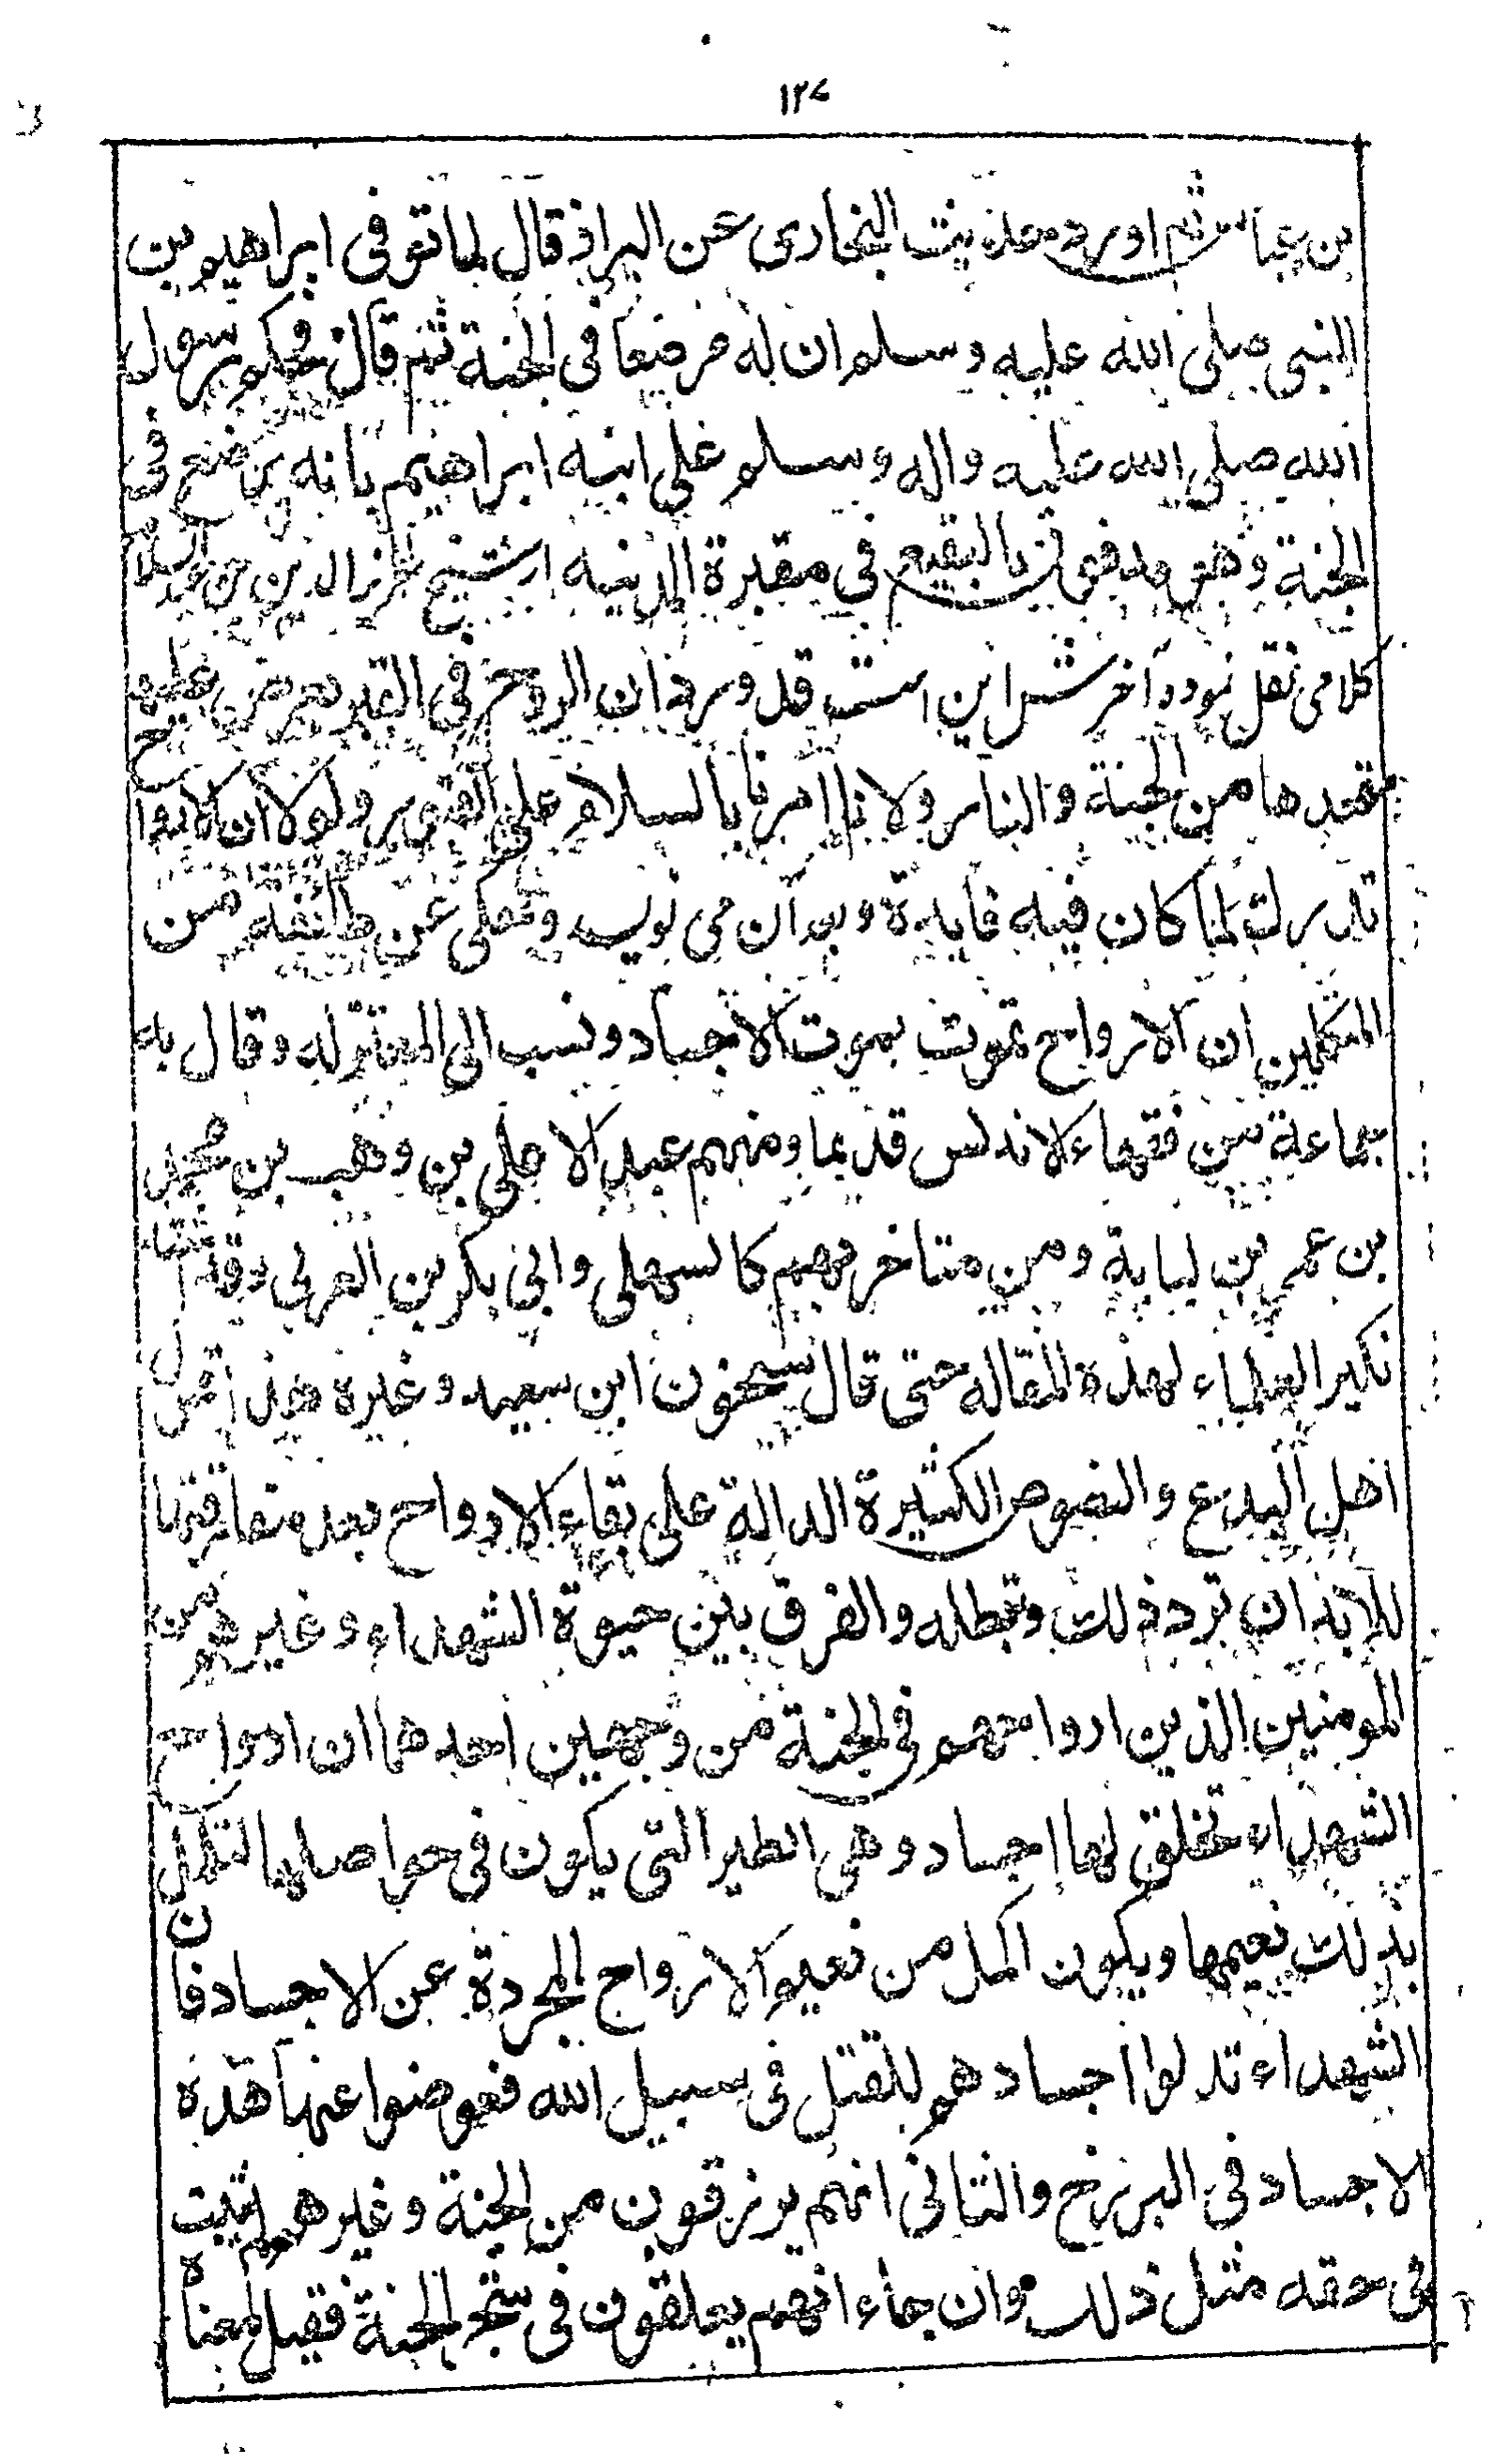 ١٢٧
بن عباس ثم اورد حديث البخارى عن البراء قال لما توفى ابراهيم بن
النبى صلى الله عليه وسلم ان له مرضعا فى الجنة ثم قال فحكم رسول
الله صلى الله عليه واله وسلم على ابنه ابراهيم بانه يرضع فى
الجنة وهو مدفون بالبقيع فى مقبرة المدنيه از شيخ عز الدين بن عبد السلام
كلامى نقل نموده آخرش اين است قد ورد ان الروح فى القبر يعرض عليها
مقعدها من الجنة والنار ولانا امرنا بالسلام على القبور ولولا ان الارواح
تدرك لما كان فيه فايدة وبعد آن مى نويسد وحكى عن طائفة من
المتكلمين ان الارواح تموت بموت الاجساد ونسب الى المعتزله وقال به
جماعة من فقهاء الاندلس قديما ومنهم عبد الاعلى بن وهب بن محمد
بن عمر بن لبابة ومن متاخريهم كالسهلى وابى بكر بن العربى وقد اشتد
نكير العلماء لهذة المقاله حتى قال سحنون ابن سعيد وغيرة هذا قول
اهل البدع والنصوص الكثيرة الدالة على بقاء الارواح بعد مفارقتها
للابدان ترد ذلك وتبطله والفرق بين حيوة الشهداء وغيرهم من
المومنين الذين ارواحهم فى الجنة من وجهين احدهما ان ارواح
الشهداء تخلق لها اجساد وهى الطير التى يكون فى حواصلها لتكمل
بذلك نعيمها ويكون اكمل من نعيم الارواح المجردة عن الاجساد فان
الشهداء بذلوا اجسادهم للقتل فى سبيل الله فعوضوا عنها هذه
الاجساد فى البرزخ والثانى انهم يرزقون من الجنة وغيرهم لم يثبت
فى حقه مثل ذلك وان جاء انهم يعلقون فى شجر الجنة فقيل معناه